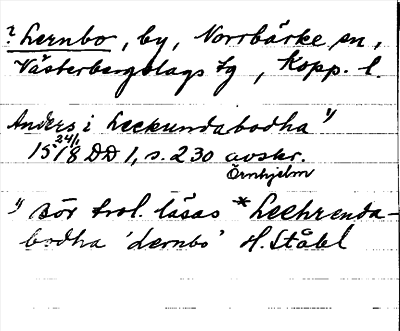 ? Lernbo, by, Norrbärke sn,
Västerbergslags tg, Kopp. l.
Anders i Leckundabodha 1)
15 24/1 18 DD 1, s. 230 avskr.
Örnhjelm
1) bör trol. läsas *Leehrenda-
bodha 'Lernbo' H. Ståhl